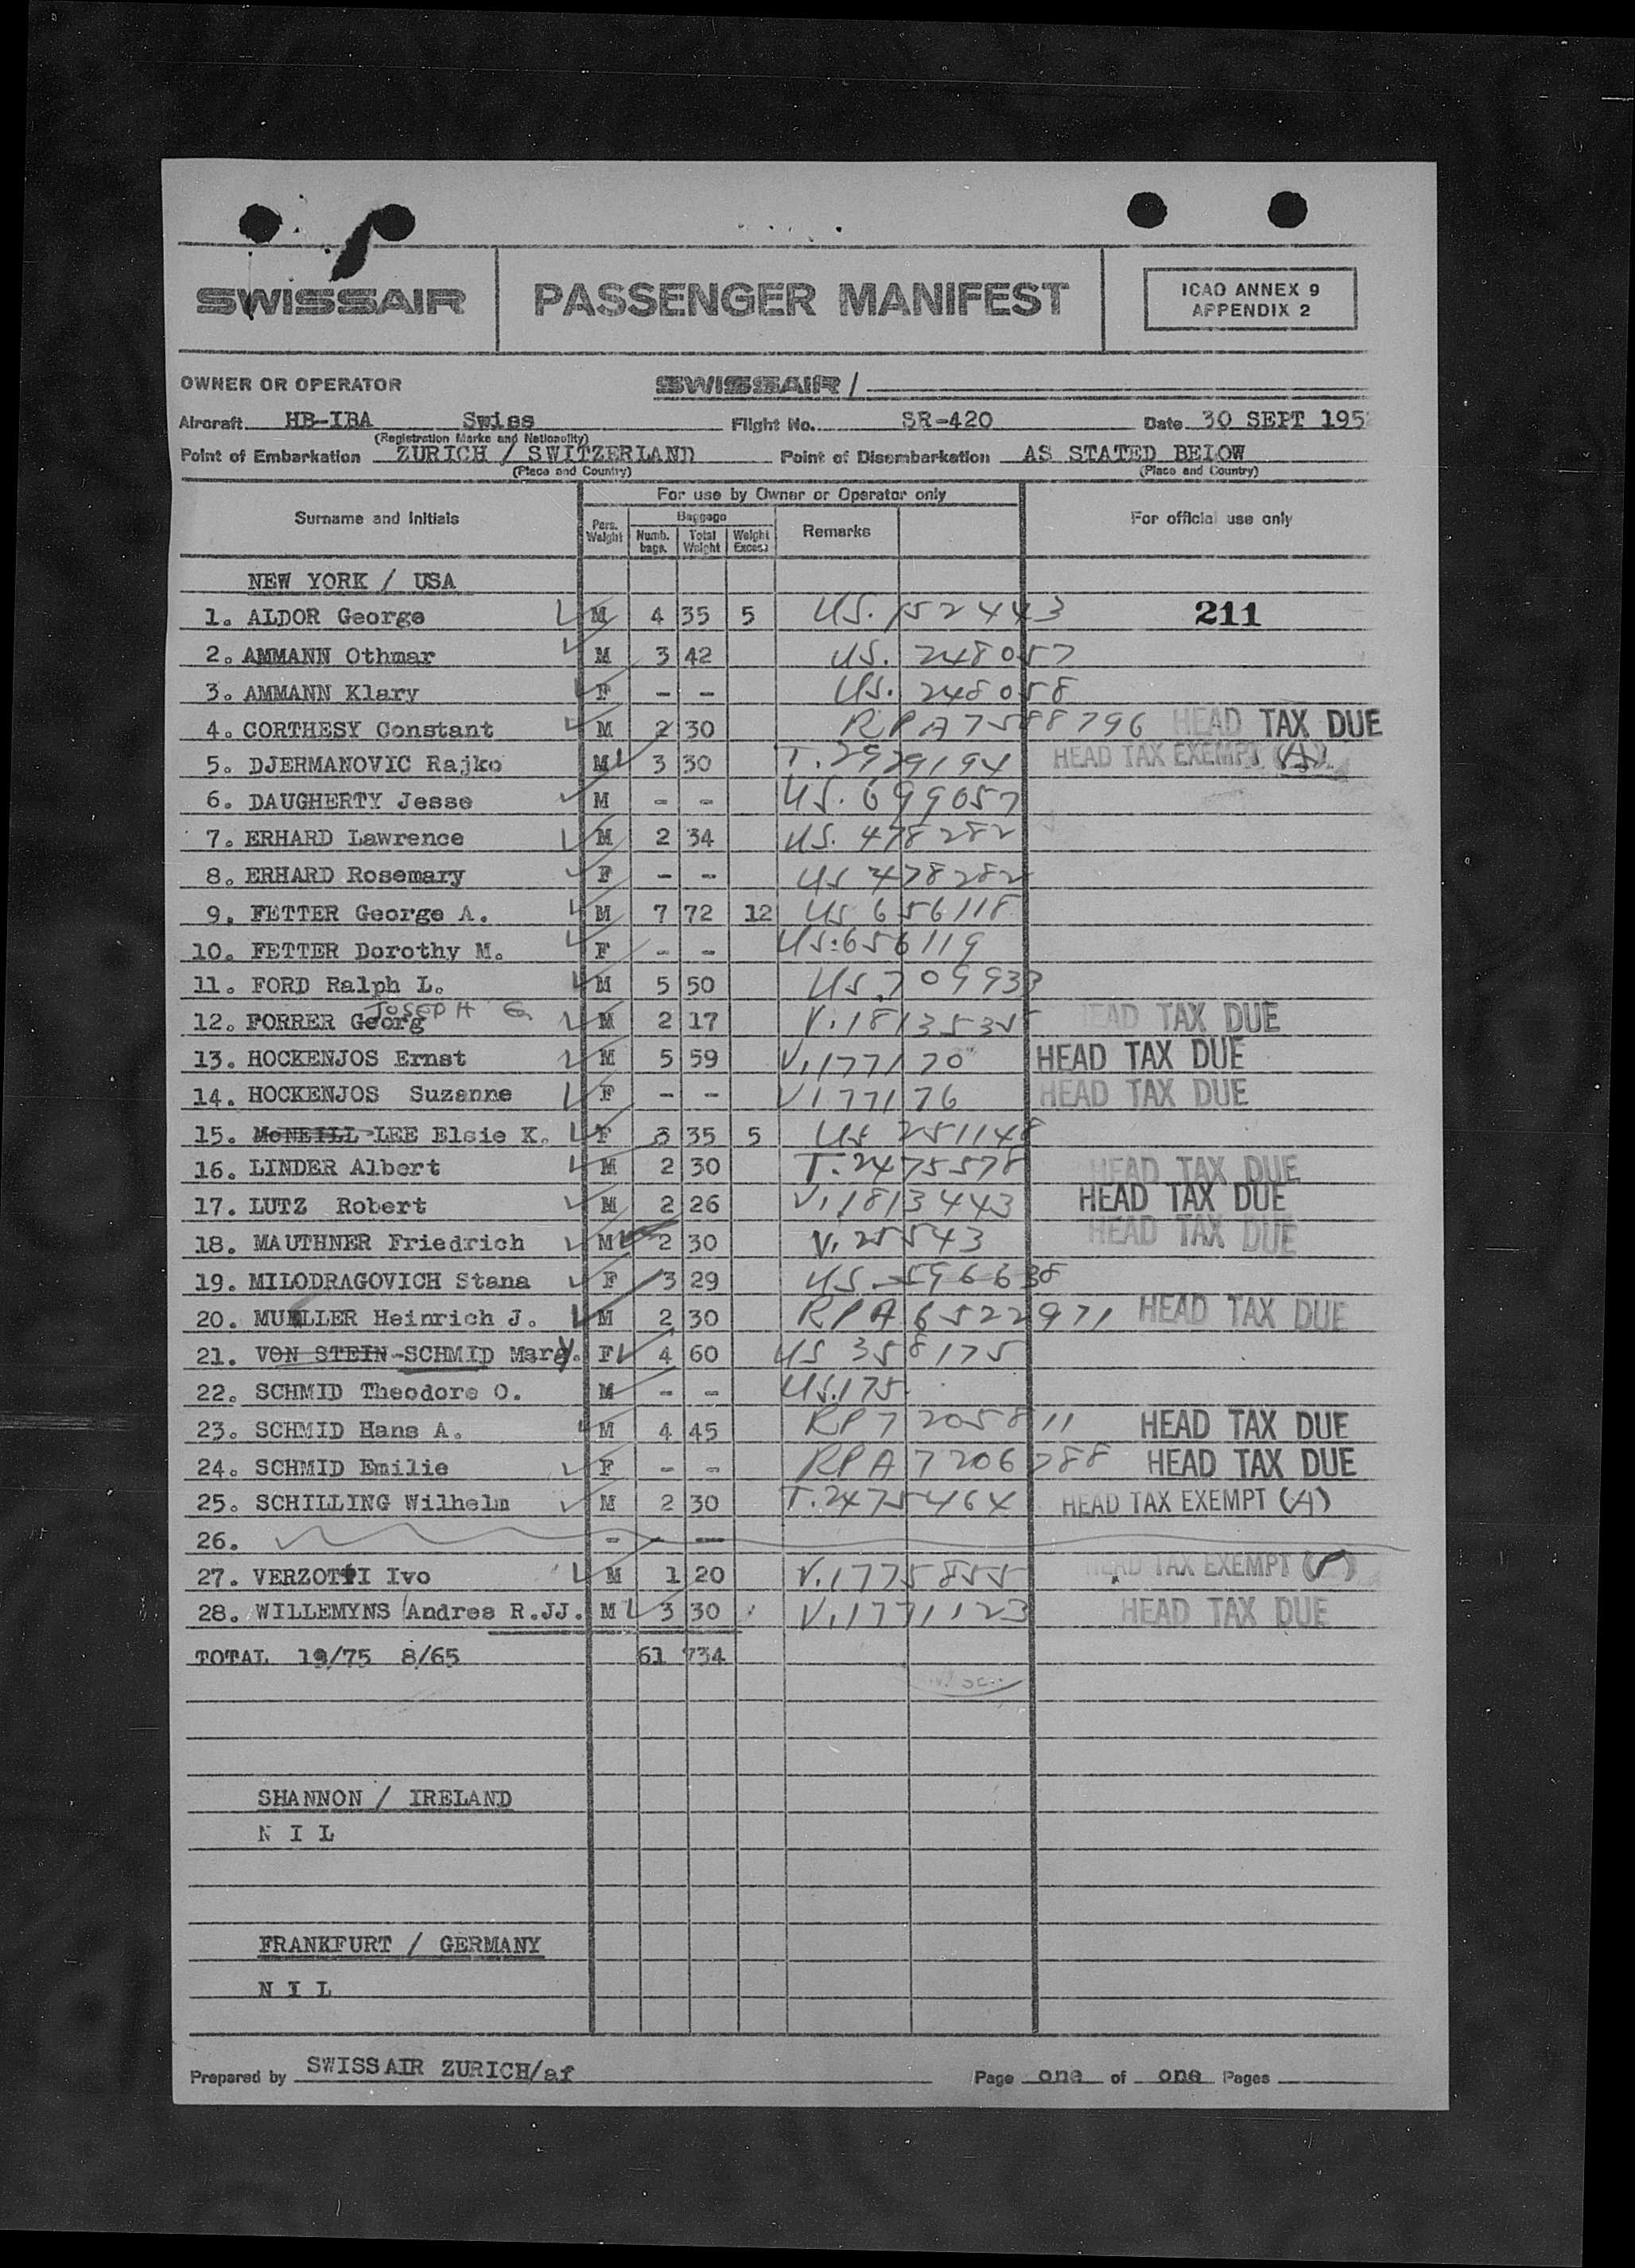 SWISSAIR PASSENGER MANIFEST ICAO ANNEX 9
APPENDIX 2
OWNER OR OPERATOR SWISSAIR /
Aircraft HB-IBA Swiss Flight No. SR-420 Date 30 SEPT 195
(Registration Marks and Nationality)
Point of Embarkation ZURICH / SWITZERLAND Point of Disembarkation AS STATED BELOW
(Place and Country) (Place and Country)
For use by Owner or Operator only
Surname and Initials Pers. Weight Baggage Remarks For official use only
Numb. bags. Total Weight Weight Excess
NEW YORK / USA
1. ALDOR George M 4 35 5 US. 152443 211
2. AMMANN Othmar M 3 42 US. 248057
3. AMMANN Klary F - - US. 248058
4. CORTHESY Constant M 2 30 RPA 7588796 HEAD TAX DUE
5. DJERMANOVIC Rajko M 3 30 T. 2929194 HEAD TAX EXEMPT (A)
6. DAUGHERTY Jesse M - - US. 699057
7. ERHARD Lawrence M 2 34 US. 478282
8. ERHARD Rosemary F - - US 478282
9. FETTER George A. M 7 72 12 US 656118
10. FETTER Dorothy M. F - - US. 656119
11. FORD Ralph L. M 5 50 US. 709933
JOSEPH G
12. FORRER Georg M 2 17 V. HEAD TAX DUE
13. HOCKENJOS Ernst M 5 59 V. 177170 HEAD TAX DUE
14. HOCKENJOS Suzanne F - - V 177176 HEAD TAX DUE
15. McNEILL-LEE Elsie K. F 3 35 5 US 251148
16. LINDER Albert M 2 30 T. 2475578 HEAD TAX DUE
17. LUTZ Robert M 2 26 V. 1813443 HEAD TAX DUE
18. MAUTHNER Friedrich M 2 30 V. 25543 HEAD TAX DUE
19. MILODRAGOVICH Stana F 3 29 US. 596638
20. MUELLER Heinrich J. M 2 30 RPA 6522971 HEAD TAX DUE
21. VON STEIN-SCHMID Mary. F 4 60 US 358175
22. SCHMID Theodore O. M - - US. 175
23. SCHMID Hans A. M 4 45 RP 7205811 HEAD TAX DUE
24. SCHMID Emilie F - - RPA 7206288 HEAD TAX DUE
25. SCHILLING Wilhelm M 2 30 T. 2475464 HEAD TAX EXEMPT (A)
26. - - --
27. VERZOTTI Ivo M 1 20 V. 1775855 HEAD TAX EXEMPT (P)
28. WILLEMYNS Andres R.JJ. M 3 30 V. 1771123 HEAD TAX DUE
TOTAL 19/75 8/65 61 734
SHANNON / IRELAND
N I L
FRANKFURT / GERMANY
N I L
Prepared by SWISSAIR ZURICH/af Page one of one Pages